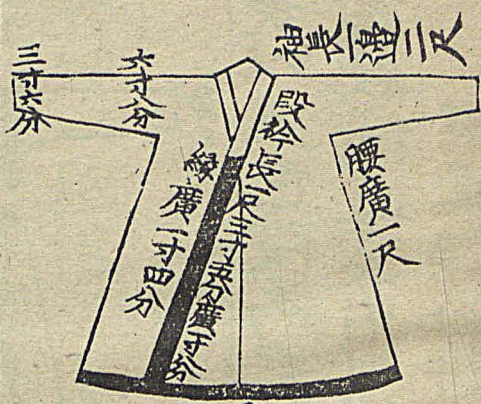 袖長一邊二尺
腰廣一尺
段衿長一尺三寸五分廣寸分
緣廣一寸四分
六寸八分
三寸六分